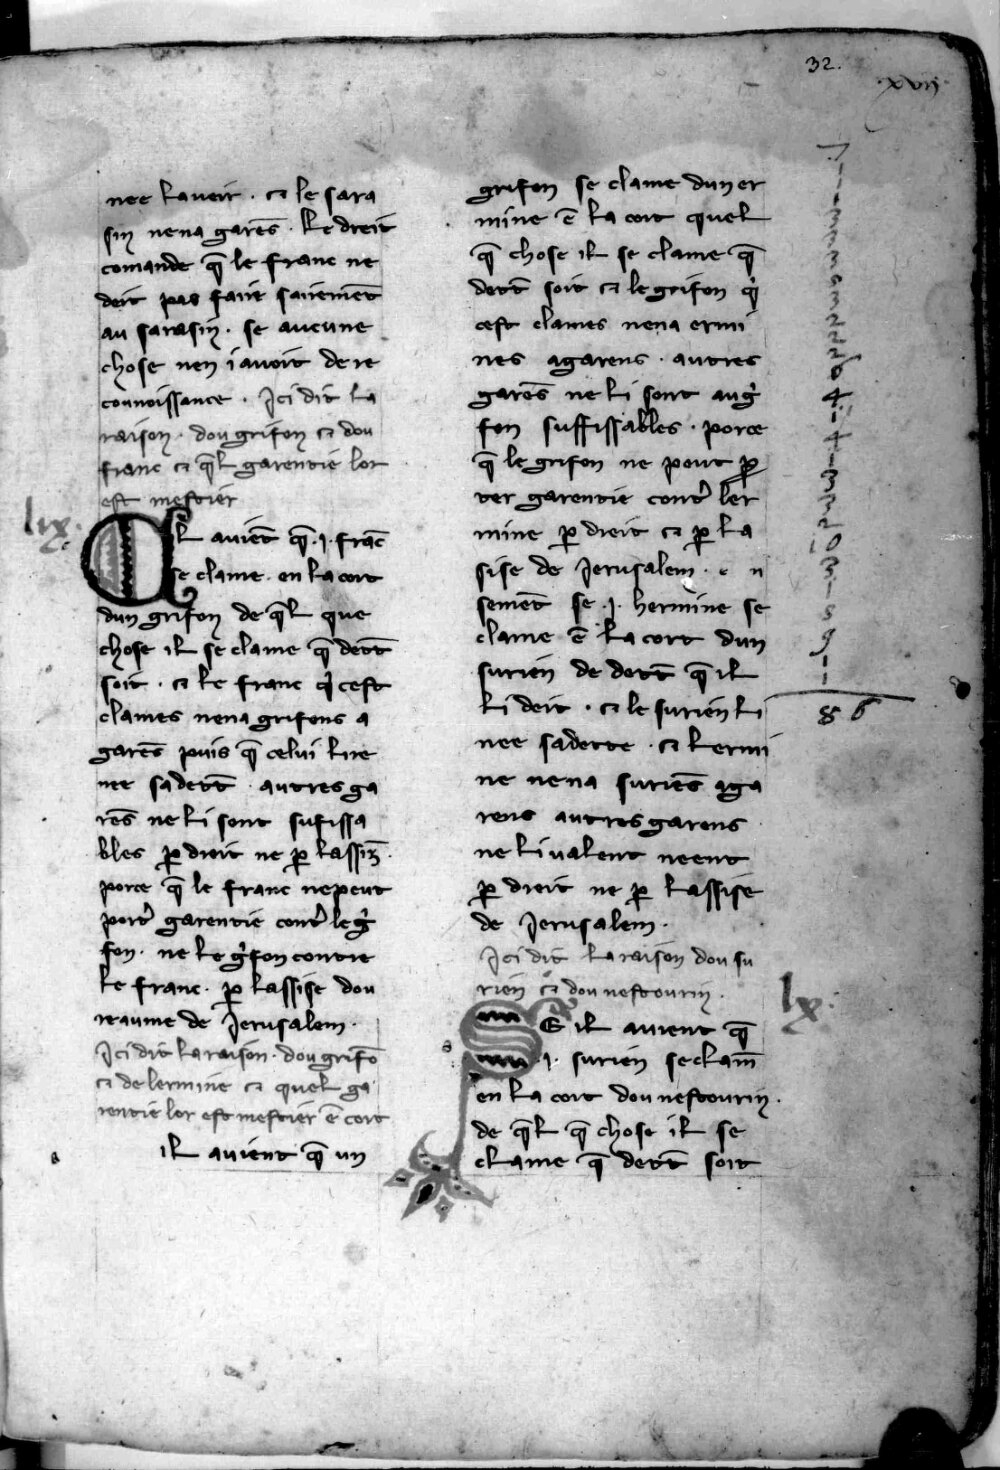 32.
xvij
nee lauoir · ⁊ le sara
sin nena garēs · le dreit
comande q̄ le franc ne
deit pas faire sairemēt
au sarasin · se aucune
chose nen i auoit de re
connoissance · Ici dit la
raison · dou grifon ⁊ dou
franc ⁊ q̄l garentie lor
est mestier
lix
il auiēt q̄ .i. frāc
se clame · en la cort
dun grifon de q̄l que
chose il se clame q̄ dett̄
soit · ⁊ le franc q̇ cest
clames nena grifons a
garēs puis q̄ celui li re
nee sa dett̄ · autres ga
rēs ne li sont sufissa
bles p̲ droit ne p̲ lassiz̄ ·
porce q̄ le franc ne peut
porť garentie conť le g̍
fon · ne le g̍fon contre
le franc · p̲ lassise dou
reaume de Jerusalem ·
Ici dit la raison · dou grifō
⁊ de lermine ⁊ quel ga
rentie lor est mestier ē cort
il auient q̄ un
grifon se clame dun er
mine ē la cort quel
q̄ chose il se clame q̄
dett̄ soit ⁊ le grifon q̇
cest clames nena ermi
nes a garens · autres
garēs ne li sont au g̍
fon suffissables · porce
q̄ le grifon ne pout p̲
ter garentie conť ler
mine p̲ dreit ⁊ p̲ la
sise de Jerusalem · e n
sement se .i. hermine se
clame ē la cort dun
surien de dett̄ q̄ il
li deit · ⁊ le surien li
nee sa dette · ⁊ lermi
ne nena suriēs a ga
rens autres garens
ne li valent neent
p̲ dreit ne p̲ lassise
de Jerusalem ·
Ici dit la raison dou su
rien ⁊ dou nestourin ·
lx
SE il auient q̄
.i. surien se clam̄
en la cort dou nestourin ·
de q̄l q̄ chose il se
clame q̄ dett̄ soit
86